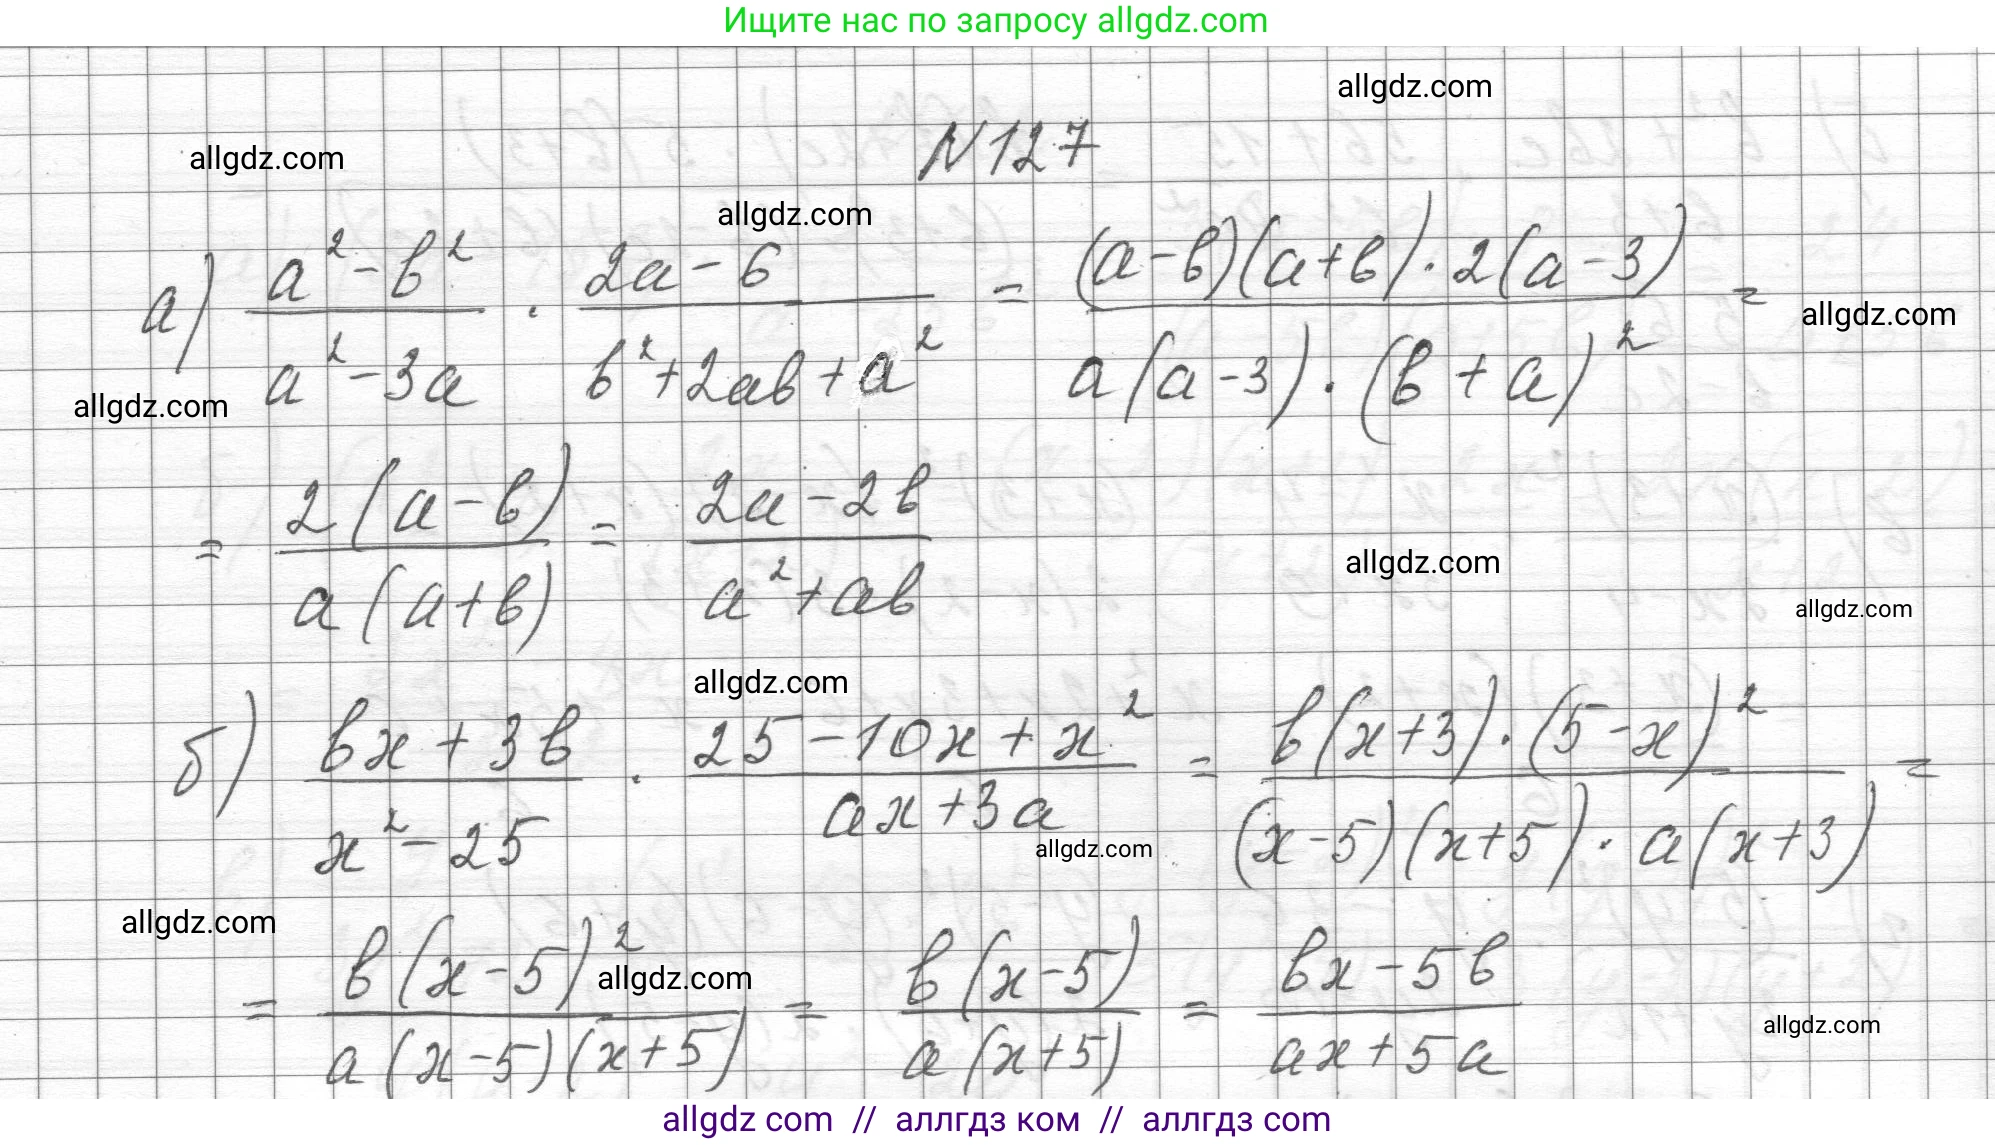 Ищите нас по запросу allgdz.com
allgdz.com
allgdz.com
N127
allgdz.com
а) (a² - b²)/(a² - 3a) · (2a - 6)/(b² + 2ab + a²) = ((a - b)(a + b) · 2(a - 3))/(a(a - 3) · (b + a)²) =
allgdz.com
allgdz.com
= (2(a - b))/(a(a + b)) = (2a - 2b)/(a² + ab)
allgdz.com
allgdz.com
allgdz.com
б) (bx + 3b)/(x² - 25) · (25 - 10x + x²)/(ax + 3a) = (b(x + 3) · (5 - x)²)/((x - 5)(x + 5) · a(x + 3)) =
allgdz.com
allgdz.com
= (b(x - 5)²)/(a(x - 5)(x + 5)) = (b(x - 5))/(a(x + 5)) = (bx - 5b)/(ax + 5a)
allgdz.com
allgdz.com
allgdz com // аллгдз ком // аллгдз com